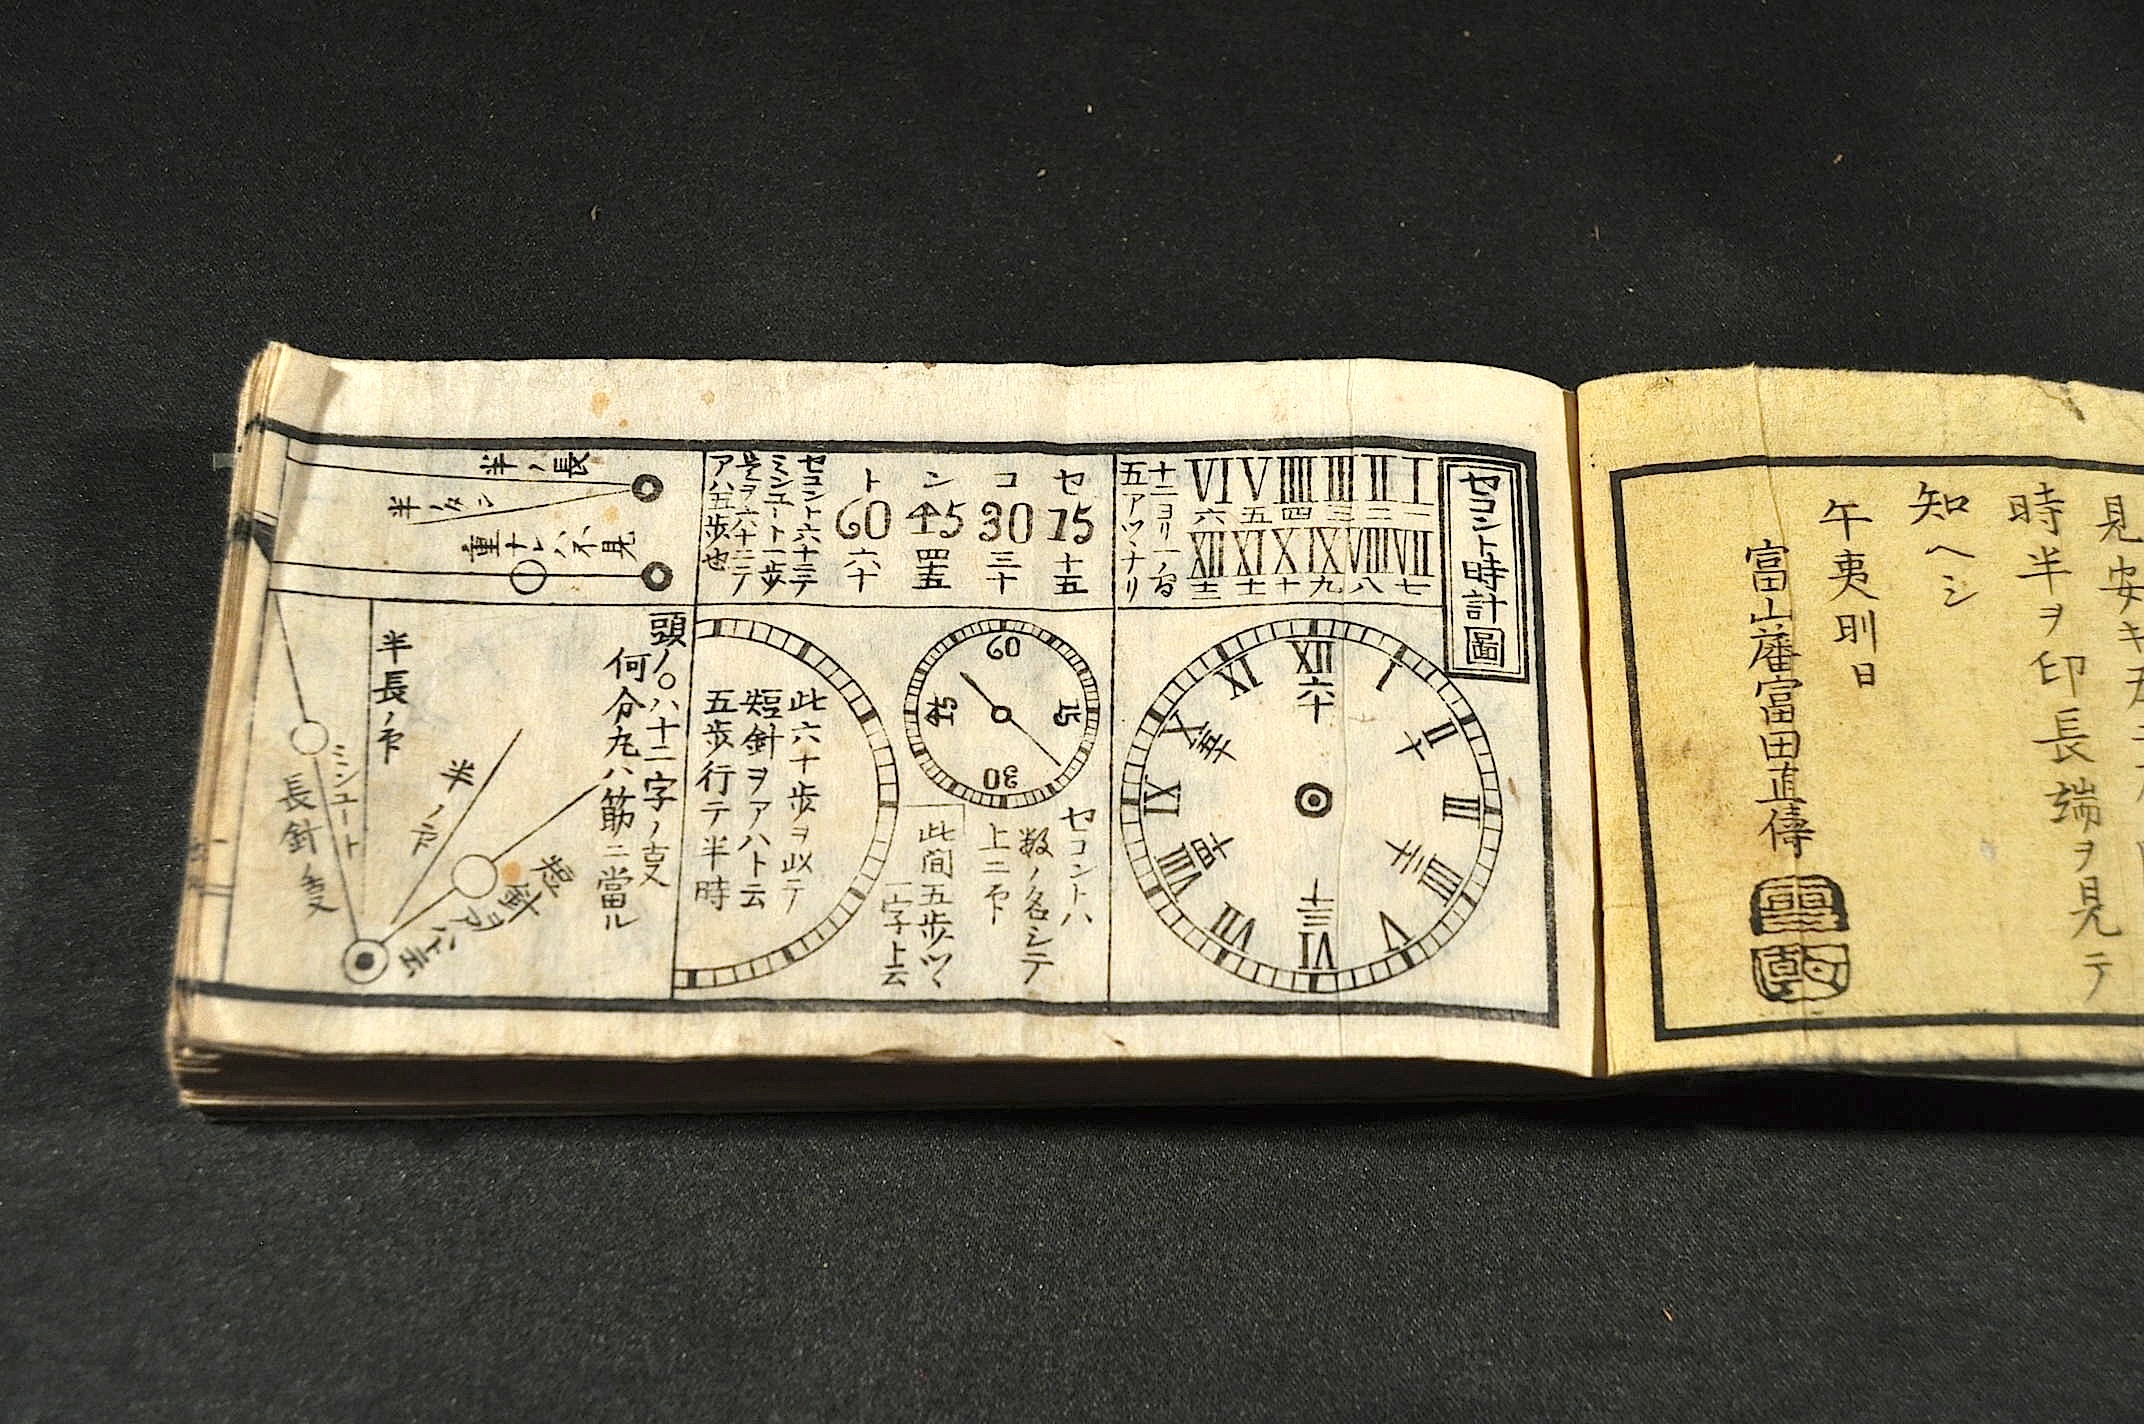 時半ヲ印長端ヲ見テ
知ヘシ
午夷則日
富山藩富田直傳
セコント時計圖
I II III IIII V VI
一 二 三 四 五 六
VII VIII IX X XI XII
七 八 九 十 十一 十二
五アツヽナリ
XII I II III IIII V VI VII VIII IX X XI
六十 十 二十 三十 四十 五十
セ コ ン ト
15 30 45 60
十五 三十 四十五 六十
セコント六十ニテ
ミンユート一歩
是ヲ六十ニテ
アハ五歩也
60 15 30 45
セコントハ
数ノ名シテ
上ニ示
此間五歩ツヽ
一字上云
此六十歩ヲ以テ
短針ヲアハト云
五歩行テ半時
長ノ半
重ナレハ不見
頭ノ○ハ十二字ノ支
何分九ハ筋ニ當ル
短針ヲアハト云
半ノ示
半長ノ示
ミンユート
長針ノ支